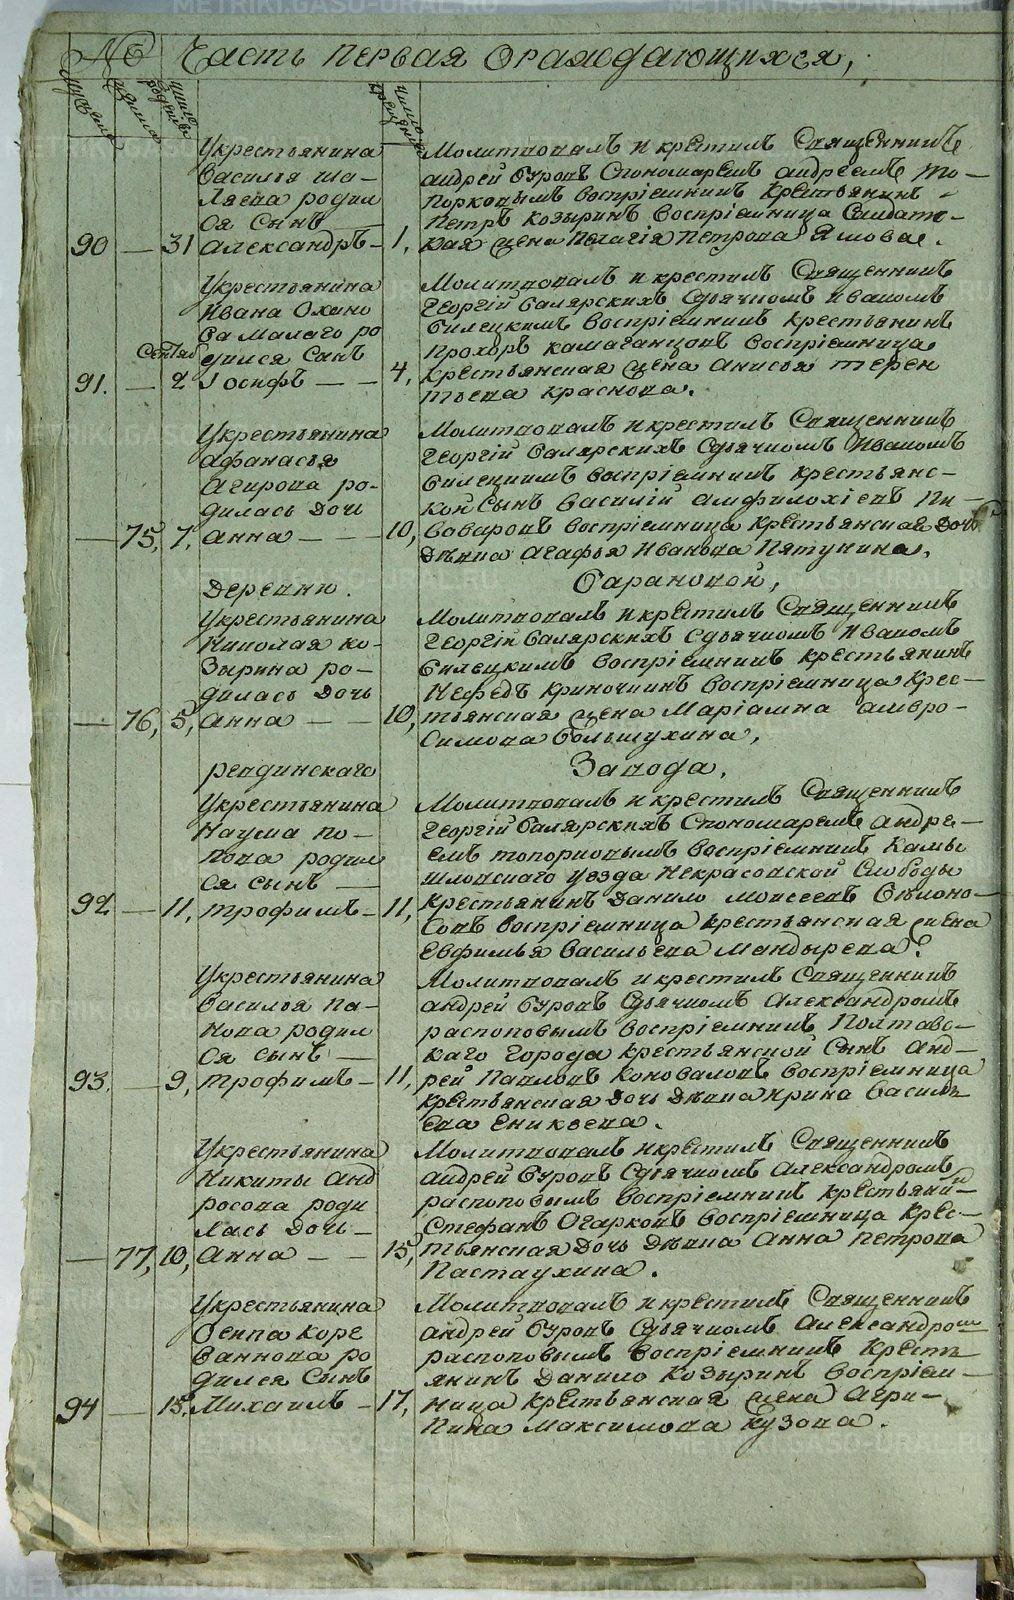 № Часть первая ораждающихся,
мужеска
женска
число рожденія
число крещенія
Укрестьянина
Василья Ша-
ляева родил
ся Сынъ
90 — 31 Александръ — 1,
Молитвовалъ и крестилъ Священникъ
андрей Буровъ Спономаремъ андреемъ То-
порковымъ воспріемникъ Крестьянинъ
Петръ Козыринъ Воспріемница Салдатс-
кая жена Пелагія Петрова Ямовае.
Укрестьянина
Ивана Охано
ва Малаго ро
Сентяб
дился Сынъ
91. — 2 Іосифъ — — 4,
Молитвовалъ и крестилъ Священникъ
Георгій Балярскихъ Сдьячкомъ Иваномъ
Билецкимъ Воспріемникъ крестьянинъ
Прохоръ камаганцовъ воспріемница
крестьянская жена анисья терен
тьева краснова.
Укрестьянина
афанасья
Агирова ро-
дилась дочь
— 75, 7, анна — — 10,
Молитвовалъ и крестилъ Священникъ
Георгій Балярскихъ Сдьячкомъ Иваномъ
Билецкимъ воспріемникъ крестьянс-
кой Сынъ василій амфилохіевъ Пи-
воваровъ воспріемница крестьянская дочь
Дѣвка агафья Иванова Пятунина.
Деревню. Барановой,
Укрестьянина
Николая ко-
зырина ро-
дилась дочь
— 76, 5, анна — — 10,
Молитвовалъ и крестилъ Священникъ
Георгій Балярскихъ Сдьячкомъ Иваномъ
Билецкимъ воспріемникъ крестьянинъ
Нефедъ криночкинъ воспріемница крес-
тьянская жена Маріамна амвро-
симова Большухина,
ревдинскаго Завода.
Укрестьянина
Наума по-
пова родил
ся сынъ —
92 — 11, трофимъ — 11,
Молитвовалъ и крестилъ Священникъ
Георгій Балярскихъ Спономаремъ андре-
емъ топорковымъ воспріемникъ Камы
шловскаго уезда Некрасовской Слободы
крестьянинъ Данило моисеевъ Бѣлоно-
совъ воспріемница крестьянская жена
Евфимья васильева Мандырева.
Укрестьянина
Василья Па-
нова родил
ся сынъ —
93. — 9, трофимъ — 11,
Молитвовалъ и крестилъ Священникъ
андрей Буровъ Сдьячкомъ Александромъ
распоповымъ воспріемникъ Полтавс-
каго Города крестьянской Сынъ анд-
рей Павловъ Коноваловъ воспріемница
крестьянская дочь Дѣвка Ирина василь
ева Еникеева.
Укрестьянина
Никиты анд
росова роди
лась дочь —
— 77, 10, анна — — 15,
Молитвовалъ и крестилъ Священникъ
андрей Буровъ Сдьячкомъ Александромъ
распоповымъ воспріемникъ крестьянин-
Стефанъ Огарковъ воспріемница крес-
тьянская дочь Дѣвка анна петрова
Пастаухина.
Укрестьянина
Осипа коре
ваннова ро
дился Сынъ
94 — 15, Михаилъ — 17,
Молитвовалъ и крестилъ Священникъ
андрей Буровъ Сдьячкомъ Александромъ
распоповымъ воспріемникъ кресть
янинъ Данило козыринъ воспріем-
ница крестьянская жена агри-
пина максимова Кузова.
METRIKI.GASO-URAL.RU